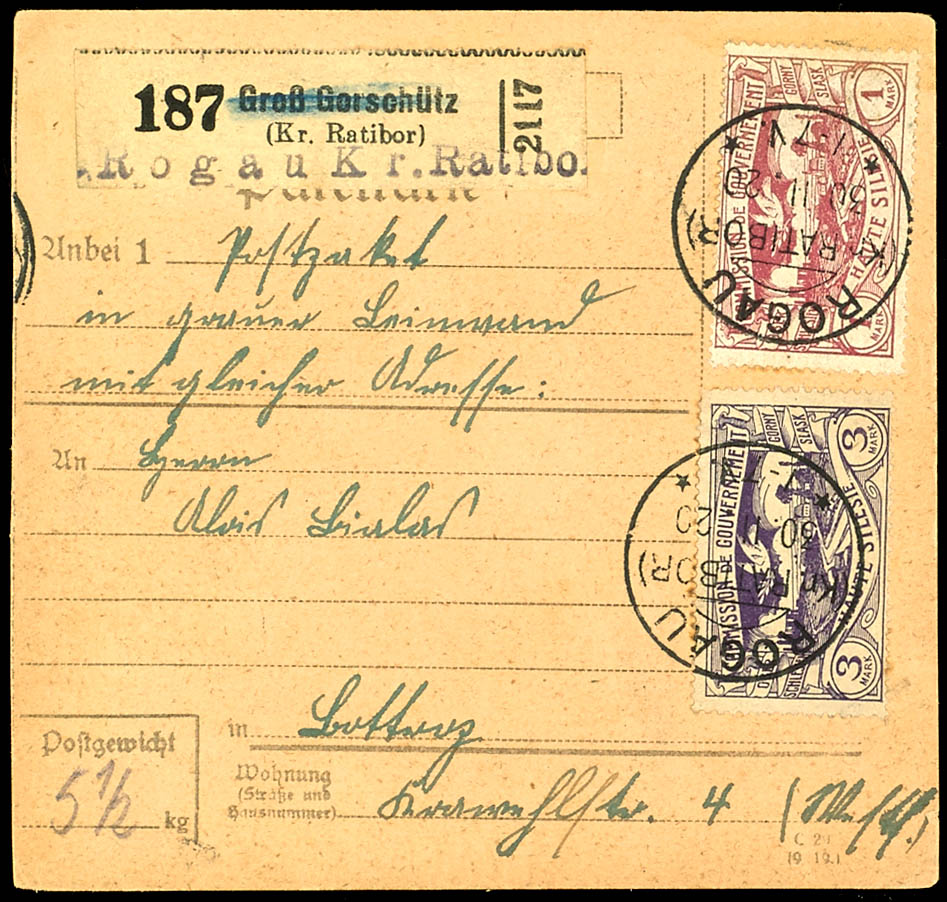 187 Groß Gorschütz
(Kr. Ratibor)
2117
Rogau Kr. Ratibo.
Anbei 1 Postpaket
in grauer Leinwand
mit gleicher Adresse:
An Herrn
Alois Bialas
in Bottrop
Wohnung
(Straße und
Hausnummer)
Krawehlstr. 4 (Westf.)
Postgewicht
5 1/2 kg
C 27
19 19.)
COMMISSION DE GOUVERNEMENT
HAUTE SILESIE
GORNY
SLASK
1 MARK
1 MARK
ROGAU
(Kr. RATIBOR)
30 11 20
COMMISSION DE GOUVERNEMENT
HAUTE SILESIE
GORNY
SLASK
3 MARK
3 MARK
ROGAU
(Kr. RATIBOR)
30 11 20